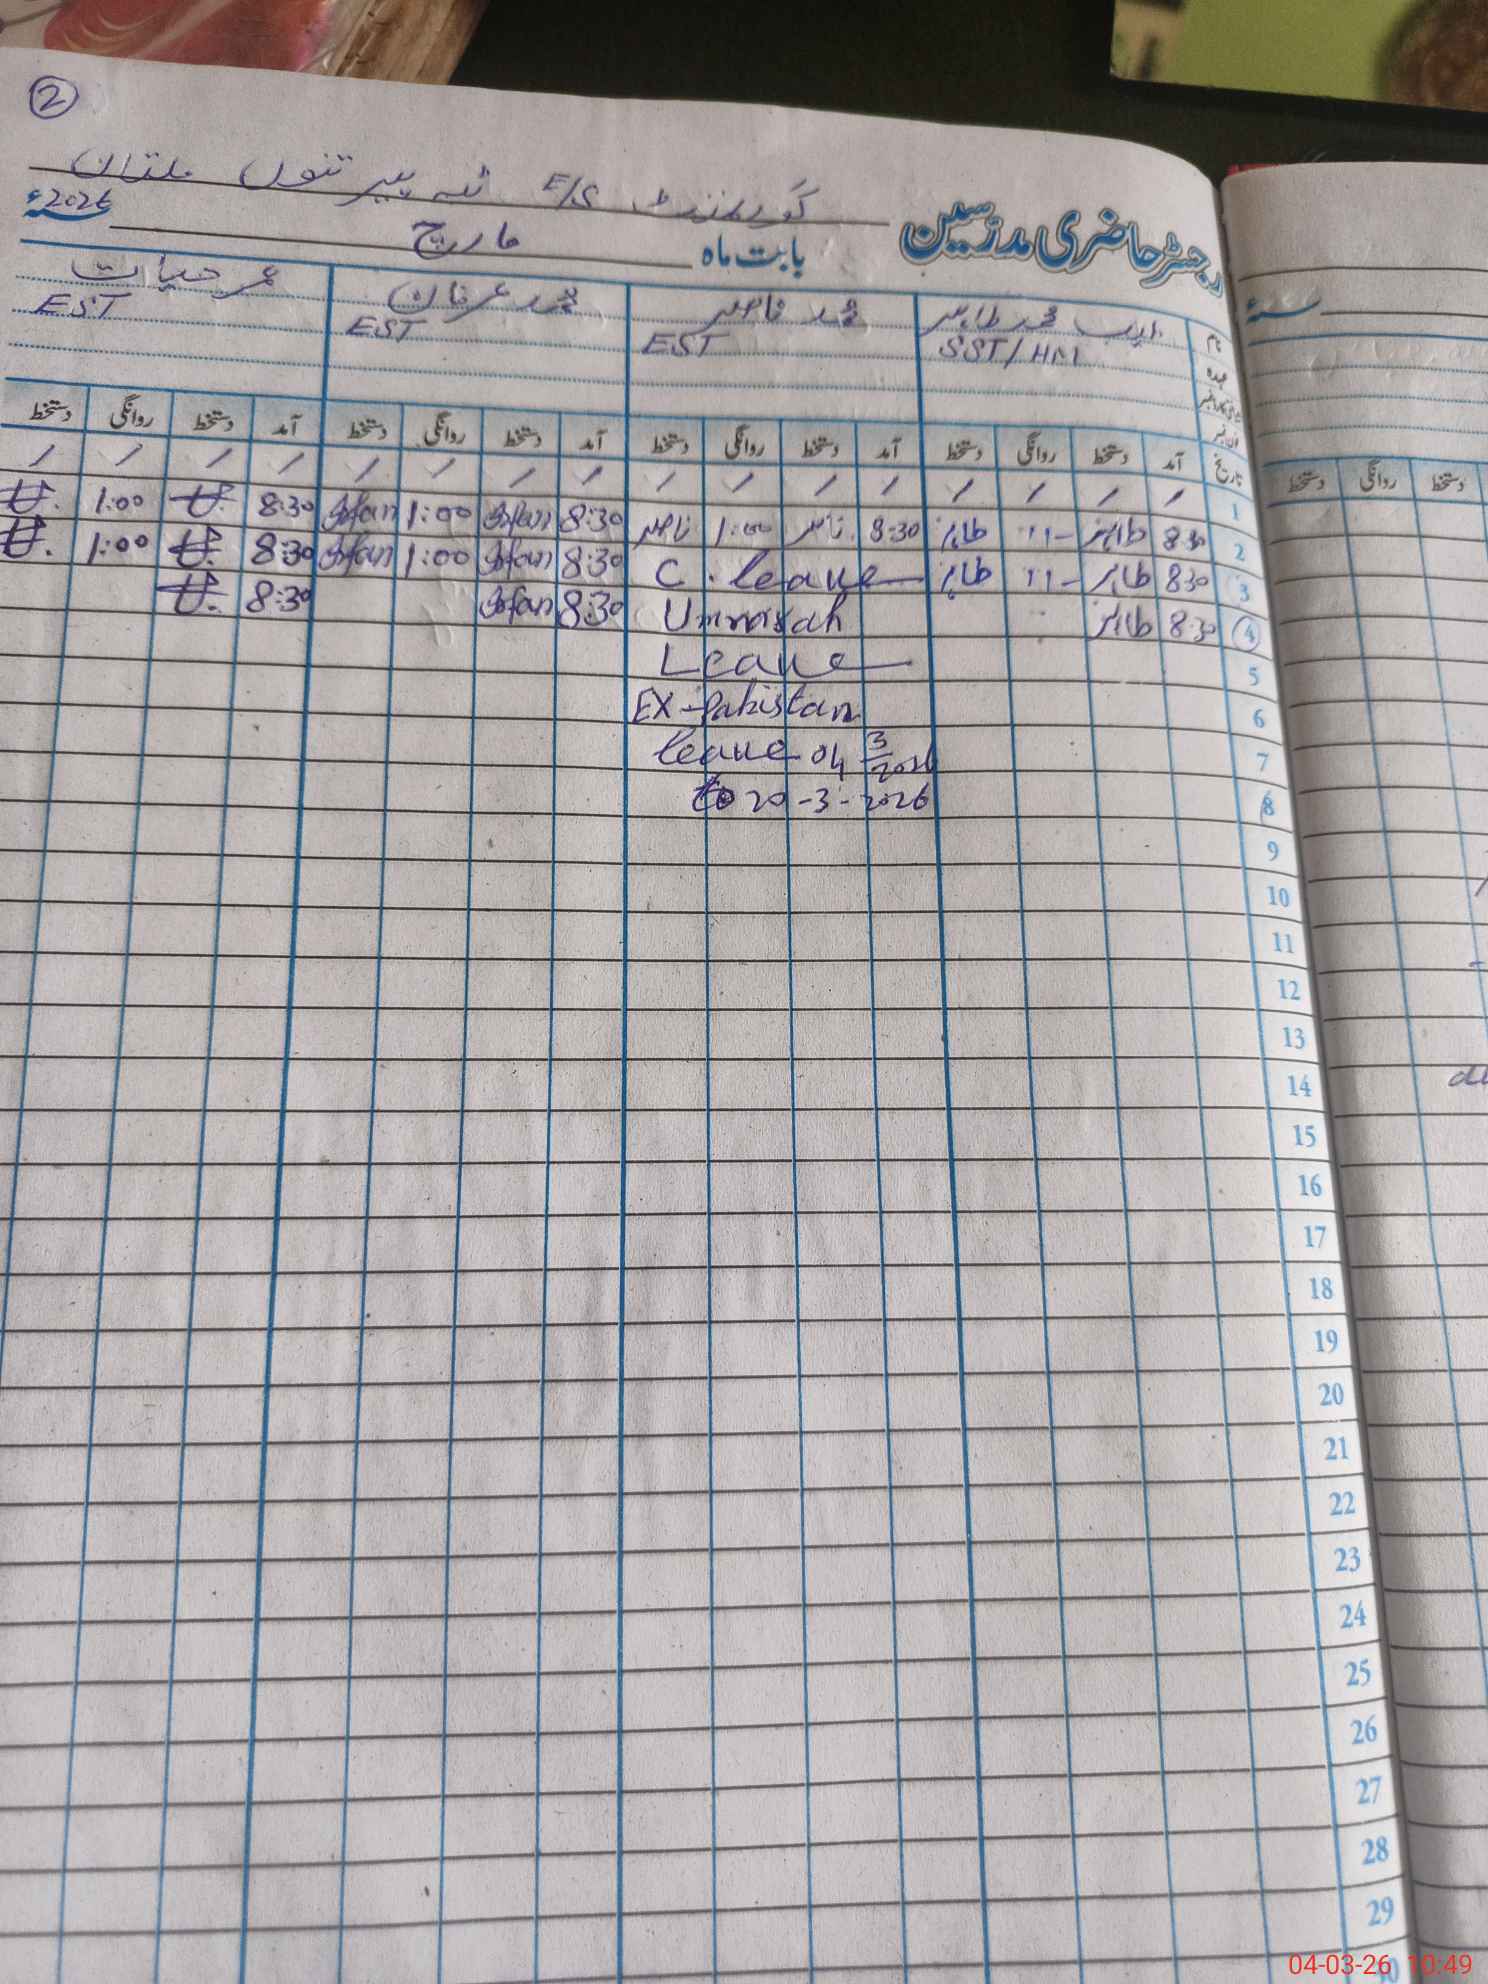 2
گورنمنٹ E/S ٹبہ پیر تنوں ملتان
رجسٹر حاضری مدرسین
بابت ماہ مارچ 2026ء
نام محمد طاہر محمد ناصر محمد عرفان عمر حیات
عہدہ SST/HM EST EST EST
تاریخ آمد دستخط روانگی دستخط آمد دستخط روانگی دستخط آمد دستخط روانگی دستخط آمد دستخط روانگی دستخط
1
2 8:30 طاہر طاہر 8:30 ناصر 1:00 ناصر 8:30 Irfan 1:00 Irfan 8:30 1:00
3 8:30 طاہر طاہر C. leave 8:30 Irfan 1:00 Irfan 8:30 1:00
4 8:30 طاہر Ummrah 8:30 Irfan 8:30
5 Leave
6 EX-Pakistan
7 leave 04 3/2026
8 to 20-3-2026
9
10
11
12
13
14
15
16
17
18
19
20
21
22
23
24
25
26
27
28
29
سنہء
دستخط روانگی دستخط
04-03-26 10:49